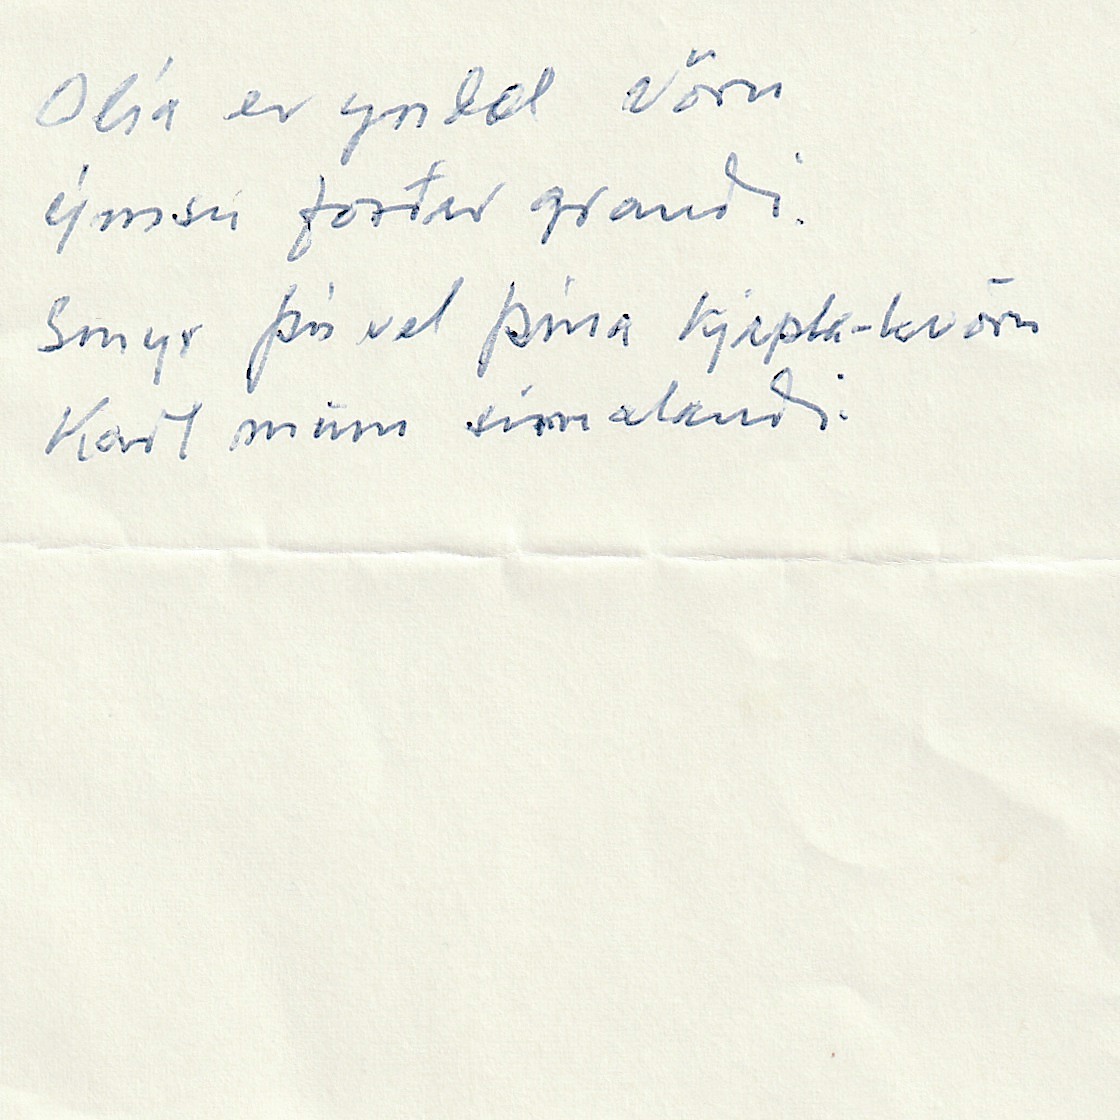 Olía er yndæl vörn
ýmsu forðar grandi.
Smyr þú vel þína kjapta-kvörn
Karl minn símalandi.